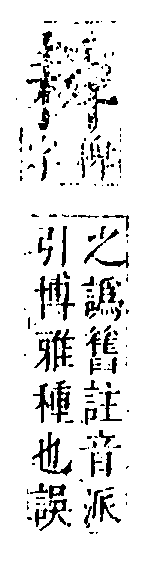 之譌舊註音派
引博雅種也誤